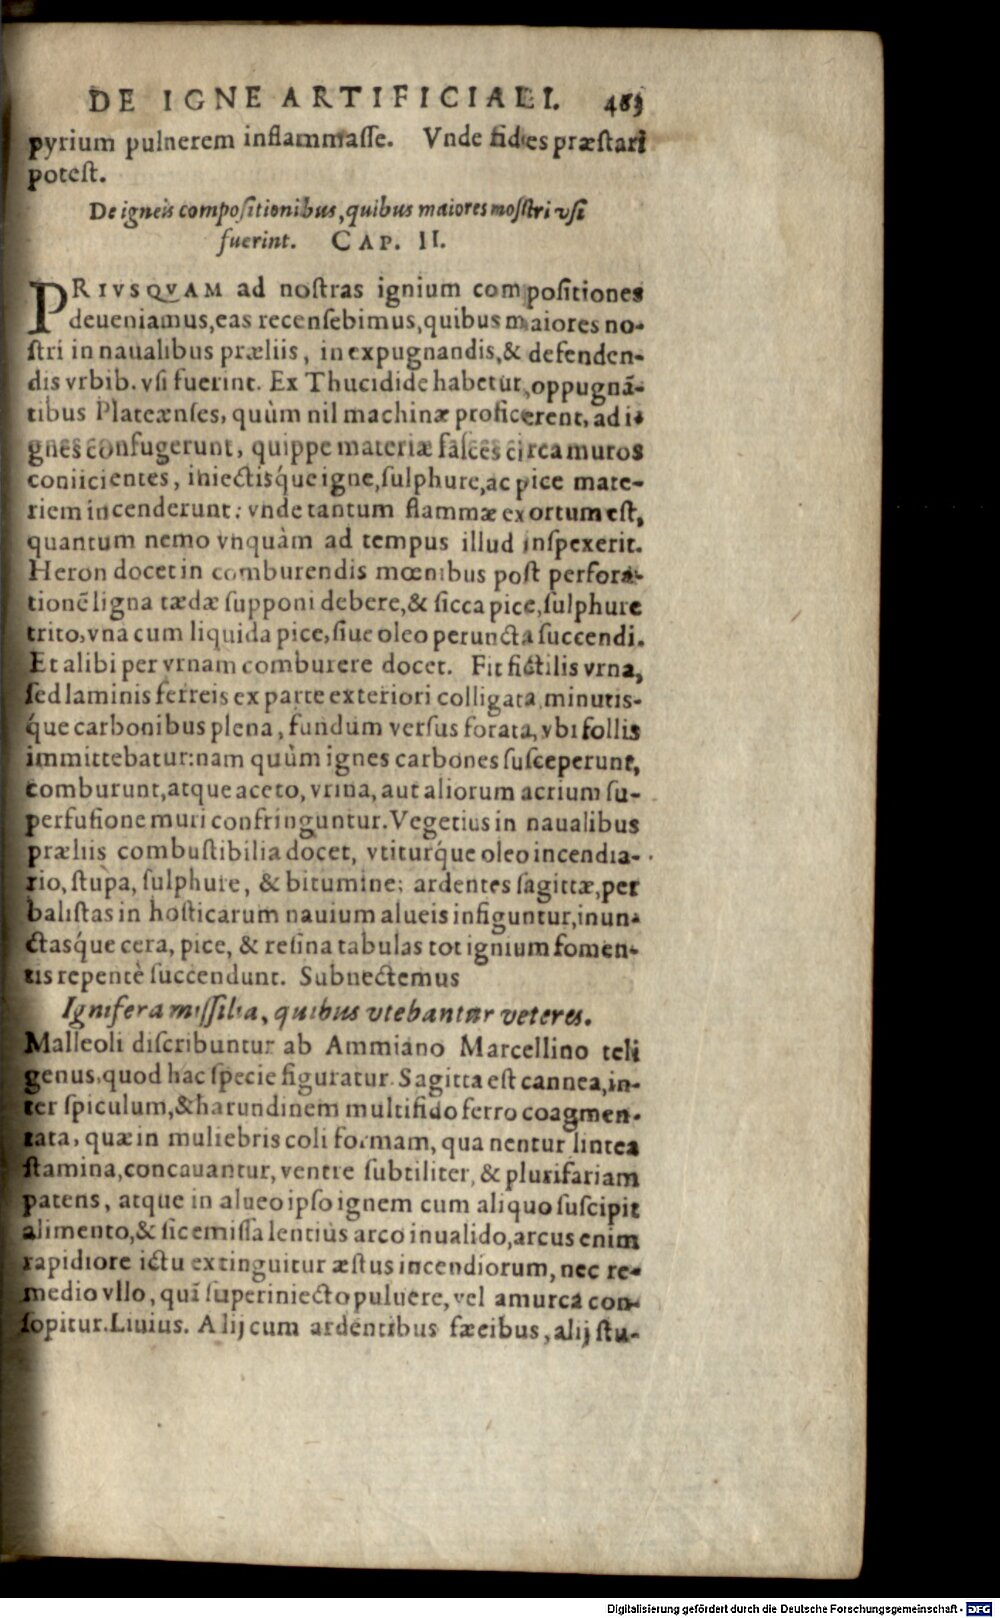 DE IGNE ARTIFICIALI. 483
pyrium puluerem inflammasse. Vnde fides præstari
potest.
De igneis compositionibus, quibus maiores nostri vsi
fuerint. CAP. II.
PRIVSQVAM ad nostras ignium compositiones
deueniamus, eas recensebimus, quibus maiores no-
stri in naualibus præliis, in expugnandis, & defenden-
dis vrbib. vsi fuerint. Ex Thucidide habetur, oppugnā-
tibus Platęænses, quùm nil machinæ proficerent, ad i-
gnes confugerunt, quippe materiæ fasces circa muros
coniicientes, iniectisq́ue igne, sulphure, ac pice mate-
riem incenderunt: vnde tantum flammæ exortum est,
quantum nemo vnquàm ad tempus illud inspexerit.
Heron docet in comburendis mœnibus post perfora-
tionē ligna tædæ supponi debere, & sicca pice, sulphure
trito, vna cum liquida pice, siue oleo peruncta succendi.
Et alibi per vrnam comburere docet. Fit fictilis vrna,
sed laminis ferreis ex parte exteriori colligata, minutis-
q́ue carbonibus plena, fundum versus forata, vbi follis
immittebatur: nam quùm ignes carbones susceperunt,
comburunt, atque aceto, vrina, aut aliorum acrium su-
perfusione muri confringuntur. Vegetius in naualibus
præliis combustibilia docet, vtiturq́ue oleo incendia-
rio, stupa, sulphure, & bitumine; ardentes sagittæ, per
balistas in hosticarum nauium alueis infiguntur, inun-
ctasq́ue cera, pice, & resina tabulas tot ignium fomen-
tis repentè succendunt. Subnectemus
Ignifera missilia, quibus vtebantur veteres.
Malleoli discribuntur ab Ammiano Marcellino teli
genus, quod hac specie figuratur. Sagitta est cannea, in-
ter spiculum, & harundinem multifido ferro coagmen-
tata, quæ in muliebris coli formam, qua nentur lintea
stamina, concauantur, ventre subtiliter, & plurifariam
patens, atque in alueo ipso ignem cum aliquo suscipit
alimento, & sic emissa lentiùs arco inualido, arcus enim
rapidiore ictu extinguitur æstus incendiorum, nec re-
medio vllo, quī superiniecto puluere, vel amurca con-
sopitur. Liuius. Alij cum ardentibus fæcibus, alij stu-